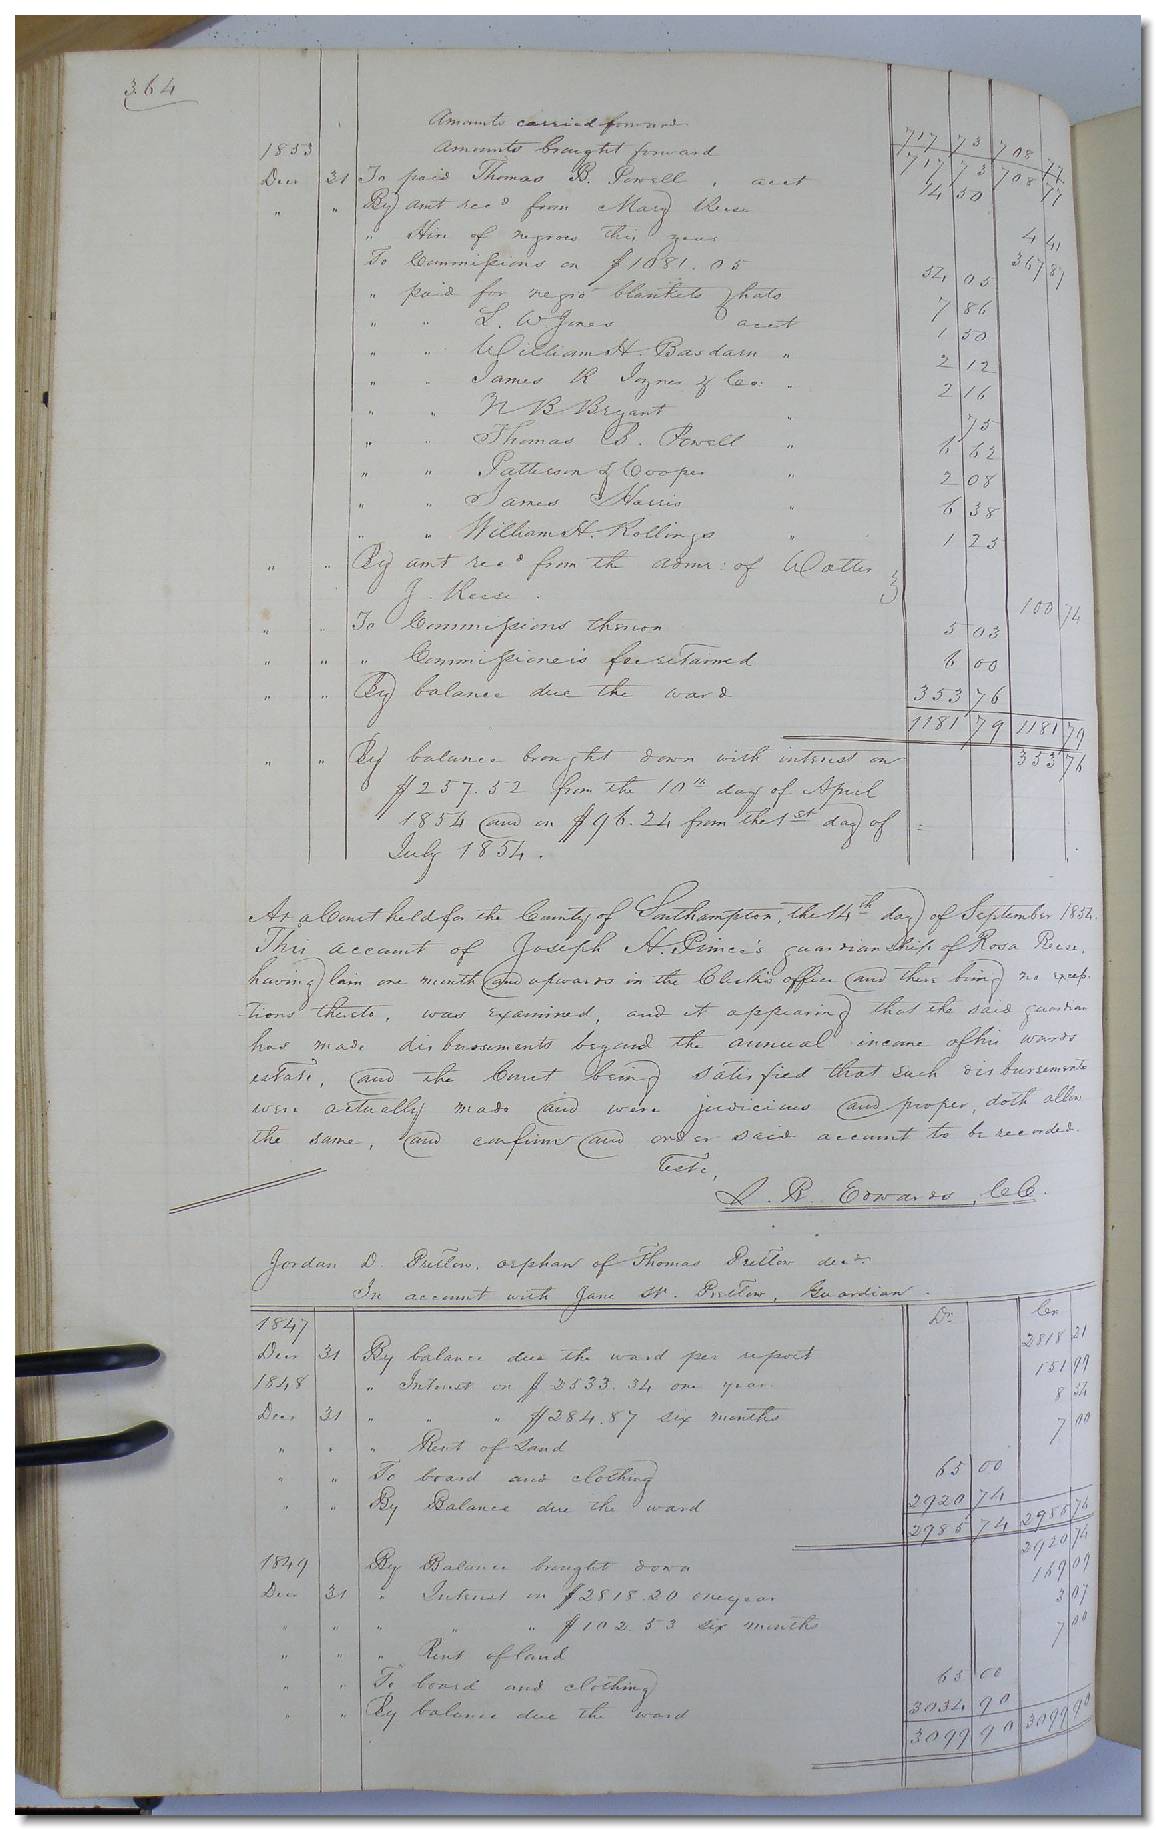 364
Amounts carried forward 717 73 708 77
1853 Amounts brought forward 717 73 708 77
Decr 31 To paid Thomas B. Powell, acct 14 50
" " By amt recd from Mary Reese 4 41
" Hire of negroes this year 367 87
To Commissions on $1081.05 54 05
" paid for negro blankets & hats 7 86
" " L. W Jones acct 1 50
" " William H. Basdarn " 2 12
" " James R Joyner & Co: " 2 16
" " N B Bryant " 75
" " Thomas B. Powell " 6 62
" " Patterson & Cooper " 2 08
" " James Harris " 6 38
" " William H. Rollings " 1 25
" " By amt recd from the admr: of
J. Reese. 100 74
" " To Commissions thereon 5 03
" " " Commissioners fee retained 6 00
" " By balance due the ward 353 76
1181 79 1181 79
" " By balance brought down with interest on 353 76
$257.52 from the 10th day of April
1854 and on $96.24 from the 1st day of
July 1854.
At a Court held for the County of Southampton, the 14th day of September 1854.
This account of Joseph H. Prince's guardianship of Rosa Reese,
having lain one month and upwards in the Clerk's office and there being no excep-
tions thereto, was examined, and it appearing that the said guardian
has made disbursements beyond the annual income of his wards
estate, and the Court being satisfied that such disbursements
were actually made and were judicious and proper, doth allow
the same, and confirm and order said account to be recorded.
Teste,
L. R. Edwards, C.C.
Jordan D. Pretlow, orphan of Thomas Pretlow decd.
In account with Jane S. Pretlow, Guardian.
1847 Dr Cr
Decr 31 By balance due the ward per report 2818 21
1848 " Interest on $2533.34 one year 151 99
Decr 31 " " " $284.87 six months 8 54
" " " Rent of Land 7 00
" " To board and clothing 65 00
" " By Balance due the ward 2920 74
2985 74 2985 74
1849 By Balance brought down 2920 74
Decr 31 " Interest on $2818.20 one year 169 09
" " " " " $102.53 six months 3 07
" " " Rent of land 7 00
" " To board and clothing 65 00
" " By balance due the ward 3034 90
3099 90 3099 90